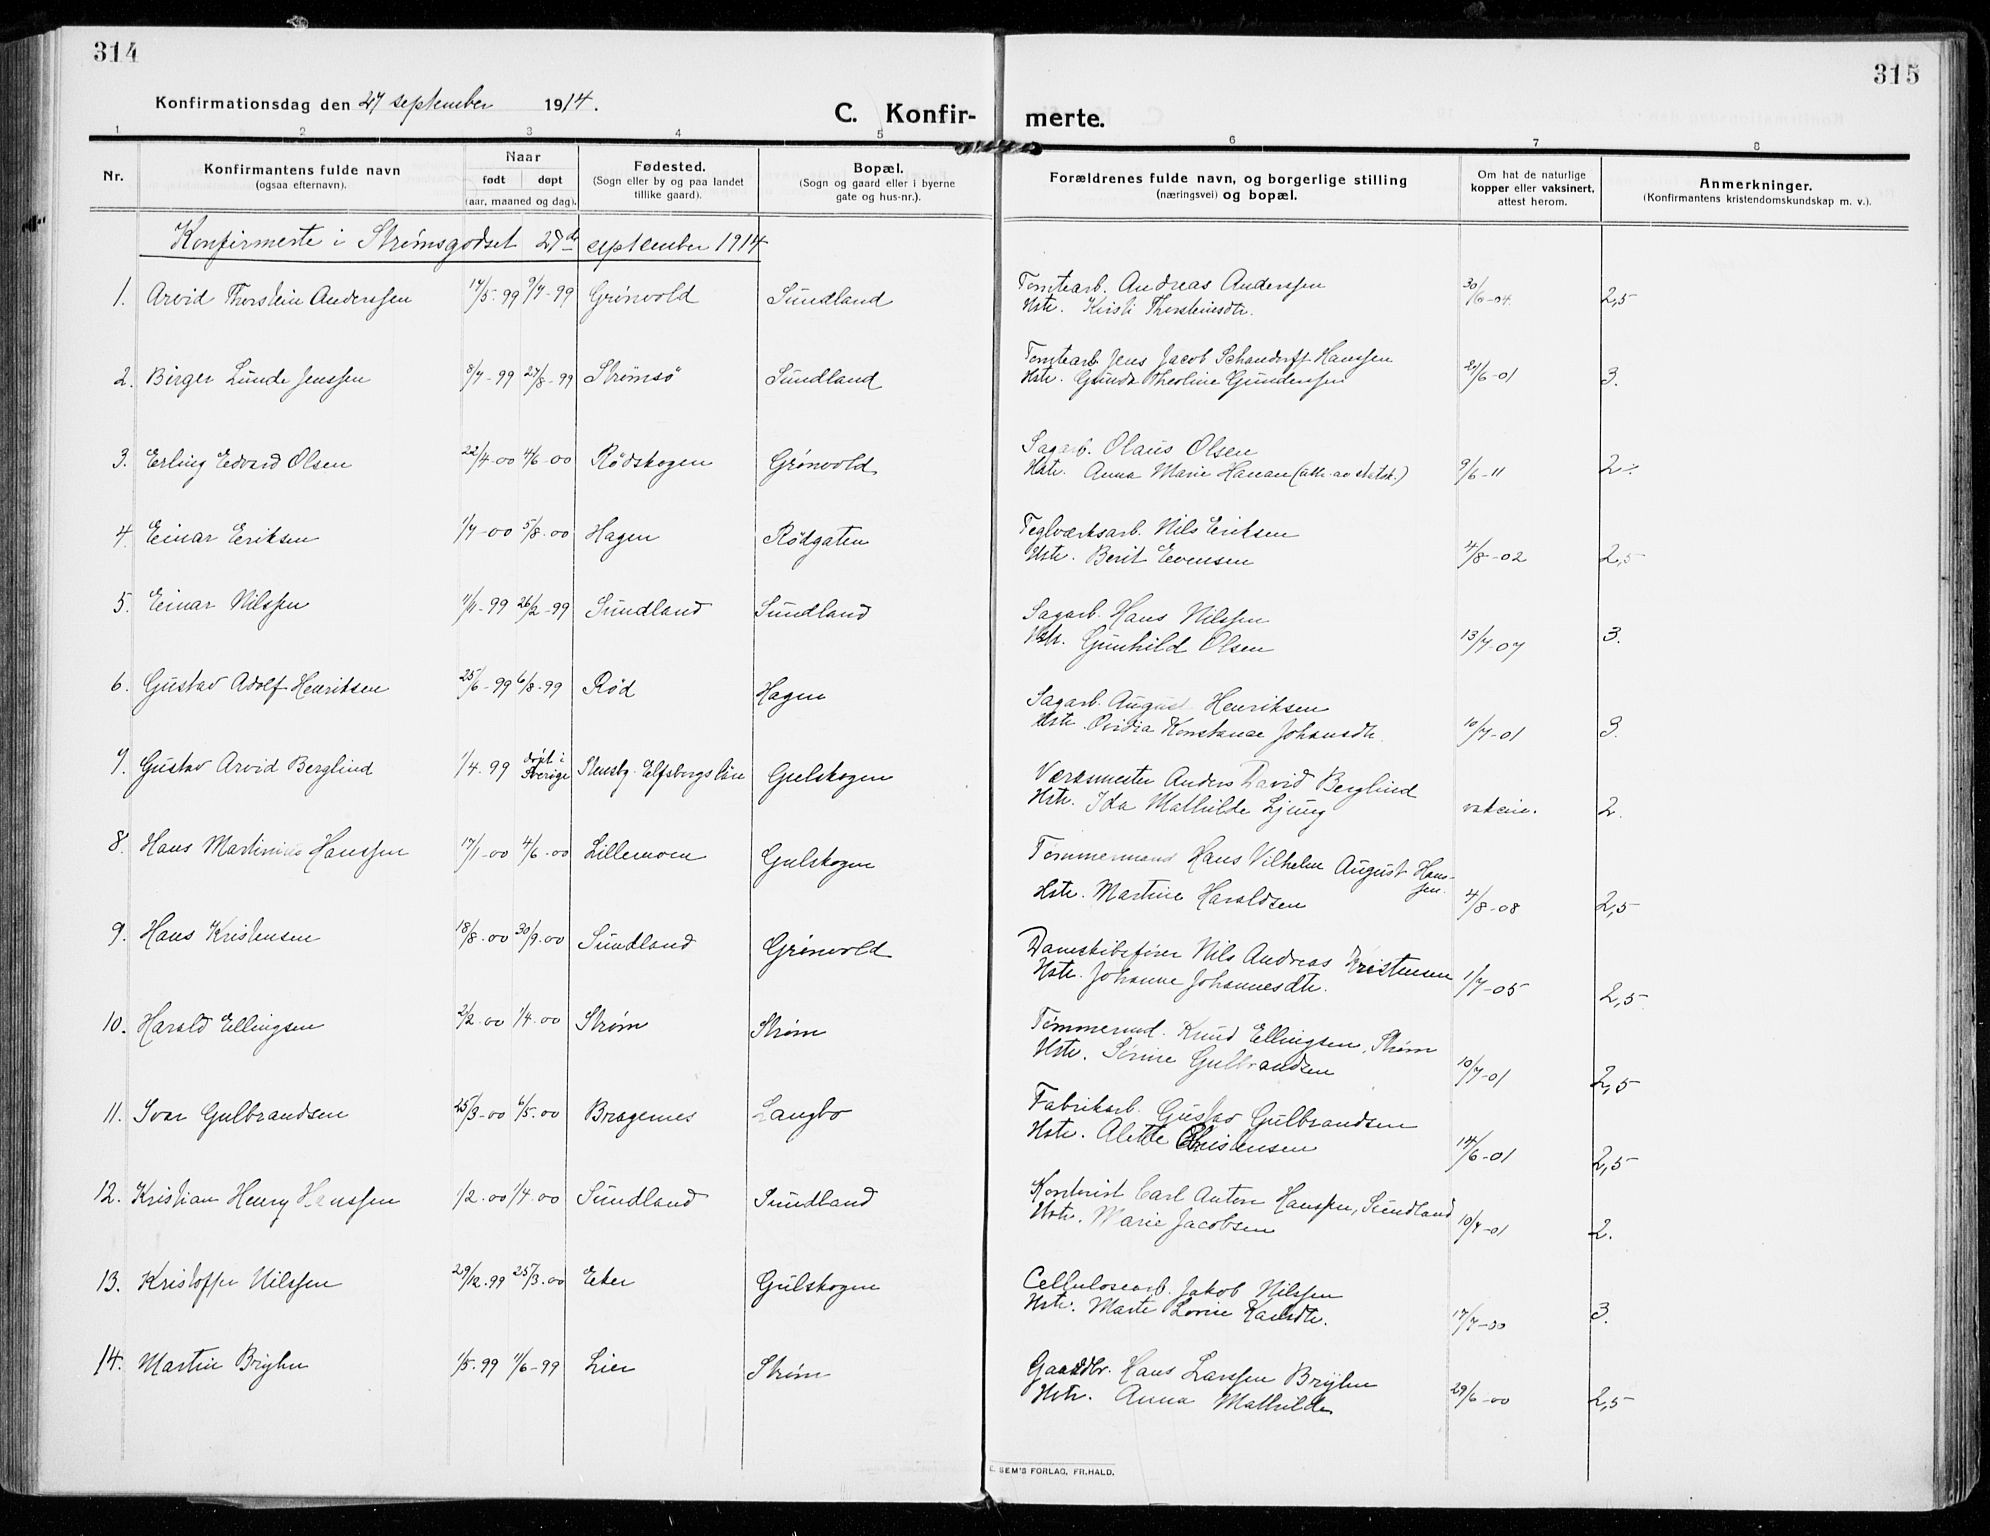 314
315
Konfirmationsdag den 27 september 1914.
C. Konfir- merte.
1 2 3 4 5 6 7 8
Nr. Konfirmantens fulde navn (ogsaa efternavn). Naar født døpt (aar, maaned og dag). Fødested. (Sogn eller by og paa landet tillike gaard). Bopæl. (Sogn og gaard eller i byerne gate og hus-nr.). Forældrenes fulde navn, og borgerlige stilling (næringsvei) og bopæl. Om hat de naturlige kopper eller vaksinert, attest herom. Anmerkninger. (Konfirmantens kristendomskundskap m. v.).
Konfirmerte i Strømsgodset 27de september 1914
1. Arvid Thorstein Anderssen 17/5-99 9/7-99 Grønvold Sundland Tomtearb. Andreas Anderssen 30/6-04. 2,5
Hstr. Kirsti Thorsteinsdtr.
2. Birger Lunde Jenssen 8/7-99 27/8-99 Strømsö Sundland Tomtearb. Jens Jacob Schandorff Hanssen 21/6-01 3.
Hstr. Gunda Theoline Gundersen
3. Erling Edvard Olsen 22/4-00 4/6-00 Rødskogen Grønvold Sagarb. Olaus Olsen
Hstr. Anna Marie Hansen (uttr. av statsk.) 9/6-11 2÷
4. Einar Eriksen 1/7-00 5/8-00 Hagen Rødgaten Teglværksarb. Nils Eriksen
Hstr. Berit Evensen 4/8-02 2,5
5. Einar Nilssen 1/11-99 26/2-99 Sundland Sundland Sagarb. Hans Nilssen
Hstr. Gunhild Olsen 13/7-07 3.
6. Gustav Adolf Henriksen 25/6-99 6/8-99 Rød Hagen Sagarb. August Henriksen
Hstr. Ovidia Konstanse Johansdtr. 10/7-01 3.
7. Gustav Arvid Berglind 1/4-99 døpt i Sverige Elfsborgs län Gulskogen Anders David Berglind
Hstr. Ida Mathilde Ljung vaksine. 2.
8. Hans Martinius Hanssen 17/1-00 4/6-00 Lillemoen Gulskogen Tømmermand Hans Vilhelm August Hans-
sen.
Hstr. Martine Haraldsen 4/8-08 2,5
9. Hans Kristensen 18/8-00 30/9-00 Sundland Grønvold Damskibsfører Nils Andreas Kristensen
Hstr. Johanne Johannesdtr. 1/7-05 2,5
10. Harald Ellingsen 2/2-00 1/4-00 Strøm Strøm Tømmermd. Knud Ellingsen, Strøm
Hstr. Sørine Gulbrandsen 10/7-01 2,5
11. Ivar Gulbrandsen 25/3-00 6/5-00 Bragernes Langbo Fabrikarb. Gustav Gulbrandsen
Hstr. Alette Christensen 14/6-01 2,5
12. Kristian Henry Hanssen 1/2-00 1/4-00 Sundland Sundland Kontorist Carl Anton Hanssen, Sundland
Hstr. Marie Jacobsen 10/7-01 2.
13. Kristoffer Nilssen 29/12-99 25/3-00 Eker Gulskogen Cellulosearb. Jakob Nilssen
Hstr. Marte Lovise 17/7-00 3.
14. Martin Bryhn 1/5-99 11/6-99 Lier Strøm Gaardbr. Hans Larssen Bryhn
Hstr. Anna Mathilde 29/6-00 2,5
E. SEM'S FORLAG, FR.HALD.